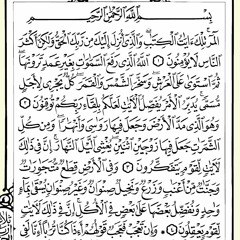 بِسْمِ اللَّهِ الرَّحْمَٰنِ الرَّحِيمِ
الٓمٓر تِلْكَ ءَايَٰتُ الْكِتَٰبِ وَالَّذِىٓ أُنزِلَ إِلَيْكَ مِن رَّبِّكَ الْحَقُّ وَلَٰكِنَّ أَكْثَرَ
النَّاسِ لَا يُؤْمِنُونَ ١ اللَّهُ الَّذِى رَفَعَ السَّمَٰوَٰتِ بِغَيْرِ عَمَدٍ تَرَوْنَهَا
ثُمَّ اسْتَوَىٰ عَلَى الْعَرْشِ وَسَخَّرَ الشَّمْسَ وَالْقَمَرَ كُلٌّ يَجْرِى لِأَجَلٍ
مُّسَمًّى يُدَبِّرُ الْأَمْرَ يُفَصِّلُ الْءَايَٰتِ لَعَلَّكُم بِلِقَآءِ رَبِّكُمْ تُوقِنُونَ ٢
وَهُوَ الَّذِى مَدَّ الْأَرْضَ وَجَعَلَ فِيهَا رَوَٰسِىَ وَأَنْهَٰرًا وَمِن كُلِّ
الثَّمَرَٰتِ جَعَلَ فِيهَا زَوْجَيْنِ اثْنَيْنِ يُغْشِى الَّيْلَ النَّهَارَ إِنَّ فِى ذَٰلِكَ
لَءَايَٰتٍ لِّقَوْمٍ يَتَفَكَّرُونَ ٣ وَفِى الْأَرْضِ قِطَعٌ مُّتَجَٰوِرَٰتٌ
وَجَنَّٰتٌ مِّنْ أَعْنَٰبٍ وَزَرْعٌ وَنَخِيلٌ صِنْوَانٌ وَغَيْرُ صِنْوَانٍ يُسْقَىٰ بِمَآءٍ
وَٰحِدٍ وَنُفَضِّلُ بَعْضَهَا عَلَىٰ بَعْضٍ فِى الْأُكُلِ إِنَّ فِى ذَٰلِكَ لَءَايَٰتٍ
لِّقَوْمٍ يَعْقِلُونَ ٤ وَإِن تَعْجَبْ فَعَجَبٌ قَوْلُهُمْ أَءِذَا كُنَّا تُرَٰبًا أَءِنَّا